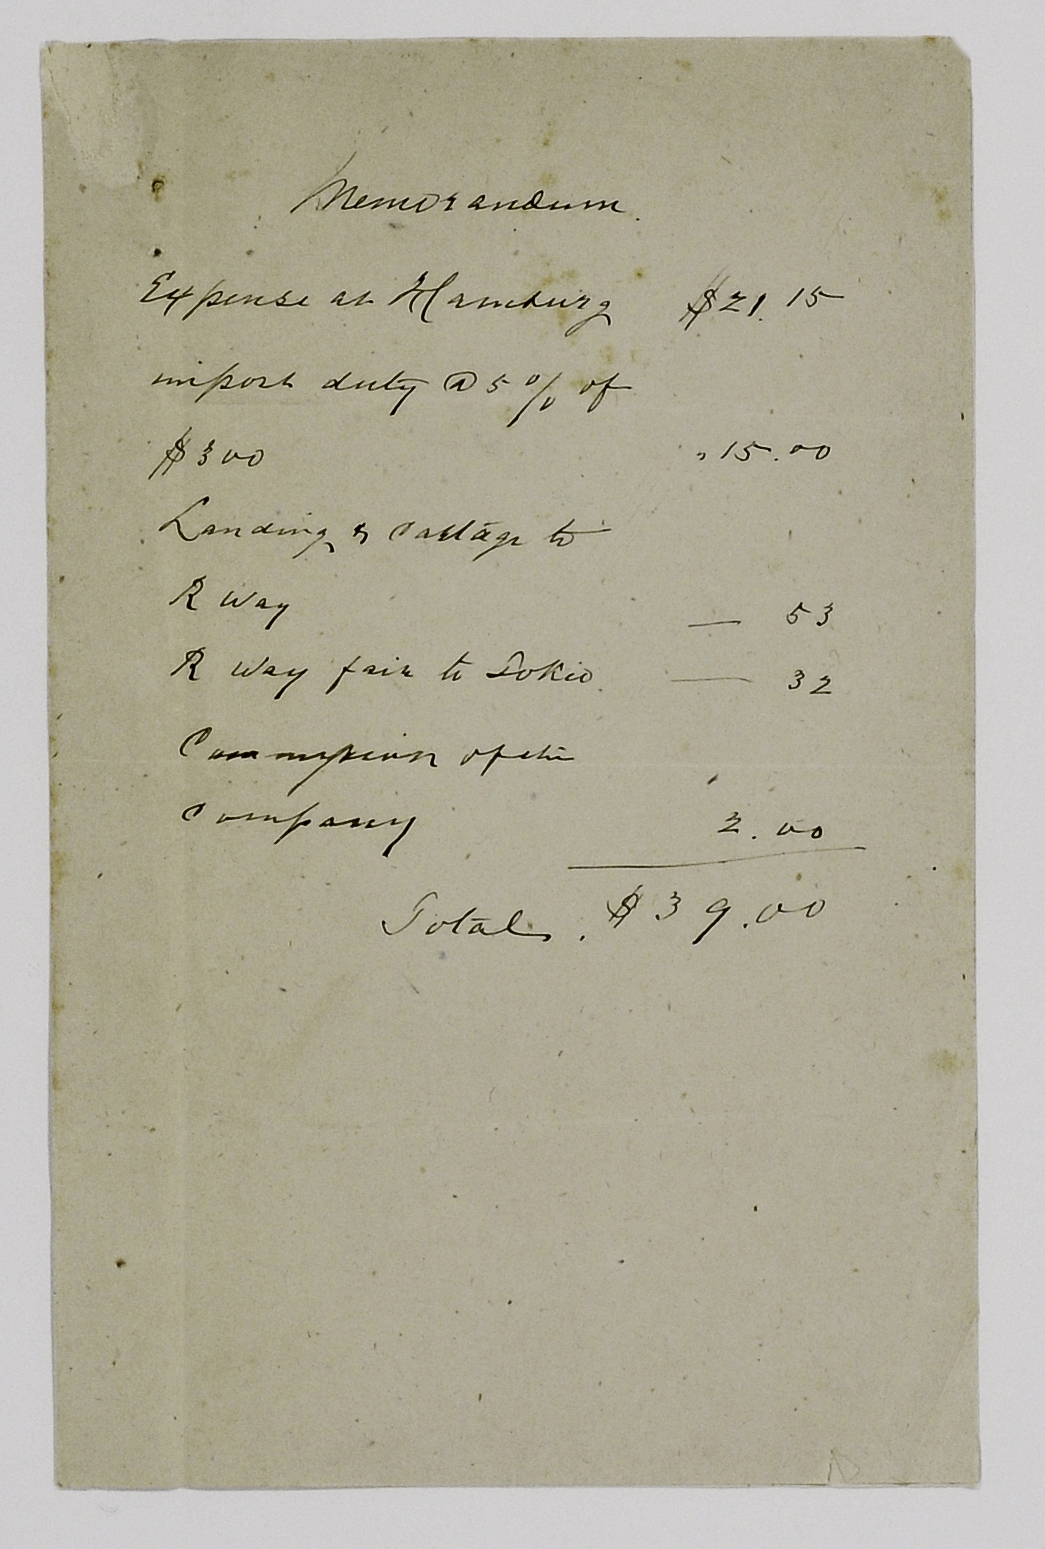 Memorandum.
Expense at Hamburg $21.15
import duty @ 5% of
$300 „ 15.00
Landing & cartage to
R Way — 53
R Way fair to Tokio — 32
Commission of the
Company 2.00
Total . $39.00